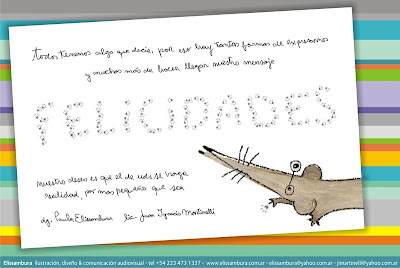 todos tenemos algo que decir, por eso hay tantas formas de expresarnos
y muchas más de hacer llegar nuestro mensaje
FELICIDADES
nuestro deseo es que el de uds se haga
realidad, por mas pequeño que sea
dg. Paula Elissambura lic. Juan Ignacio Martinelli
Elissambura ilustración, diseño & comunicación audiovisual - tel +54 223 473 1337 - www.elissambura.com.ar - elissambura@yahoo.com.ar - jimartinelli@yahoo.com.ar